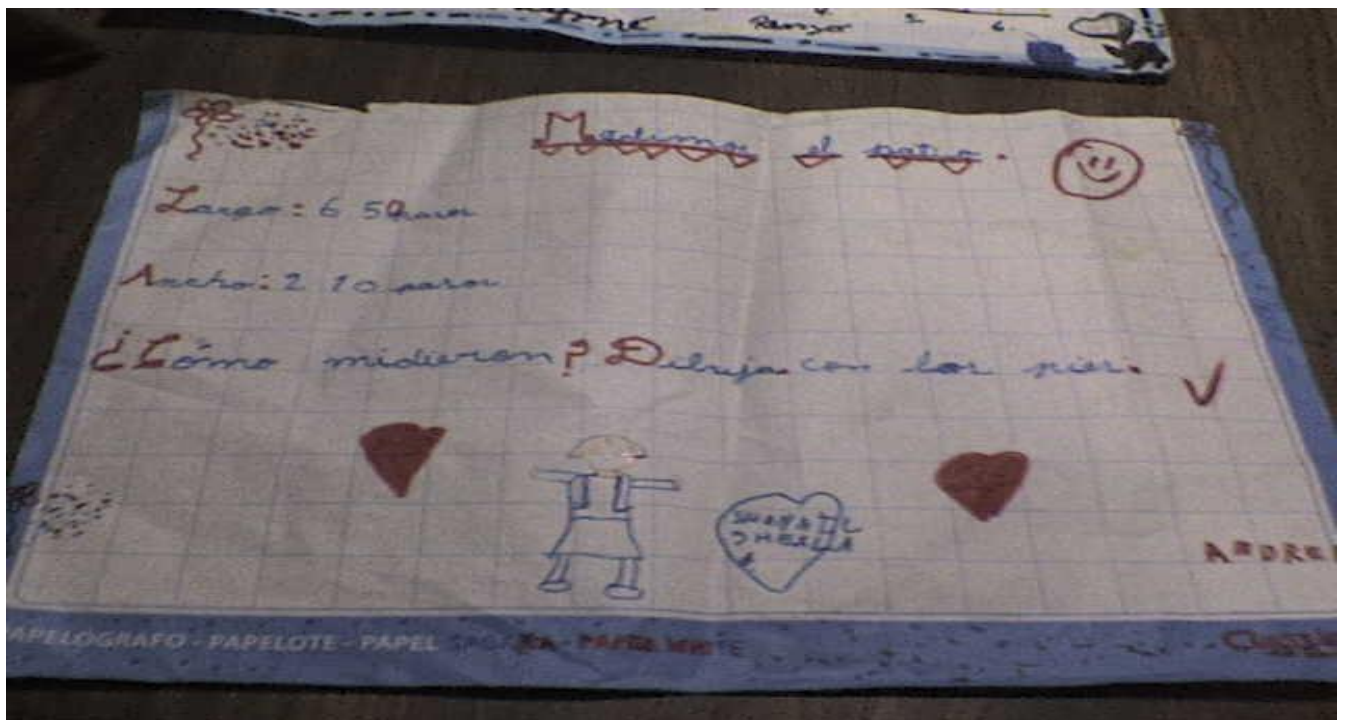 Ranger 5 6
Medimos el patio.
Largo: 6 50 pasos
Ancho: 2 10 pasos
¿Cómo midieron? Dibuja con los pies.
ANDRE
APELOGRAFO - PAPELOTE - PAPEL